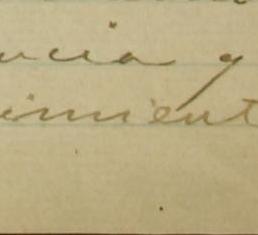 ucia y
imient